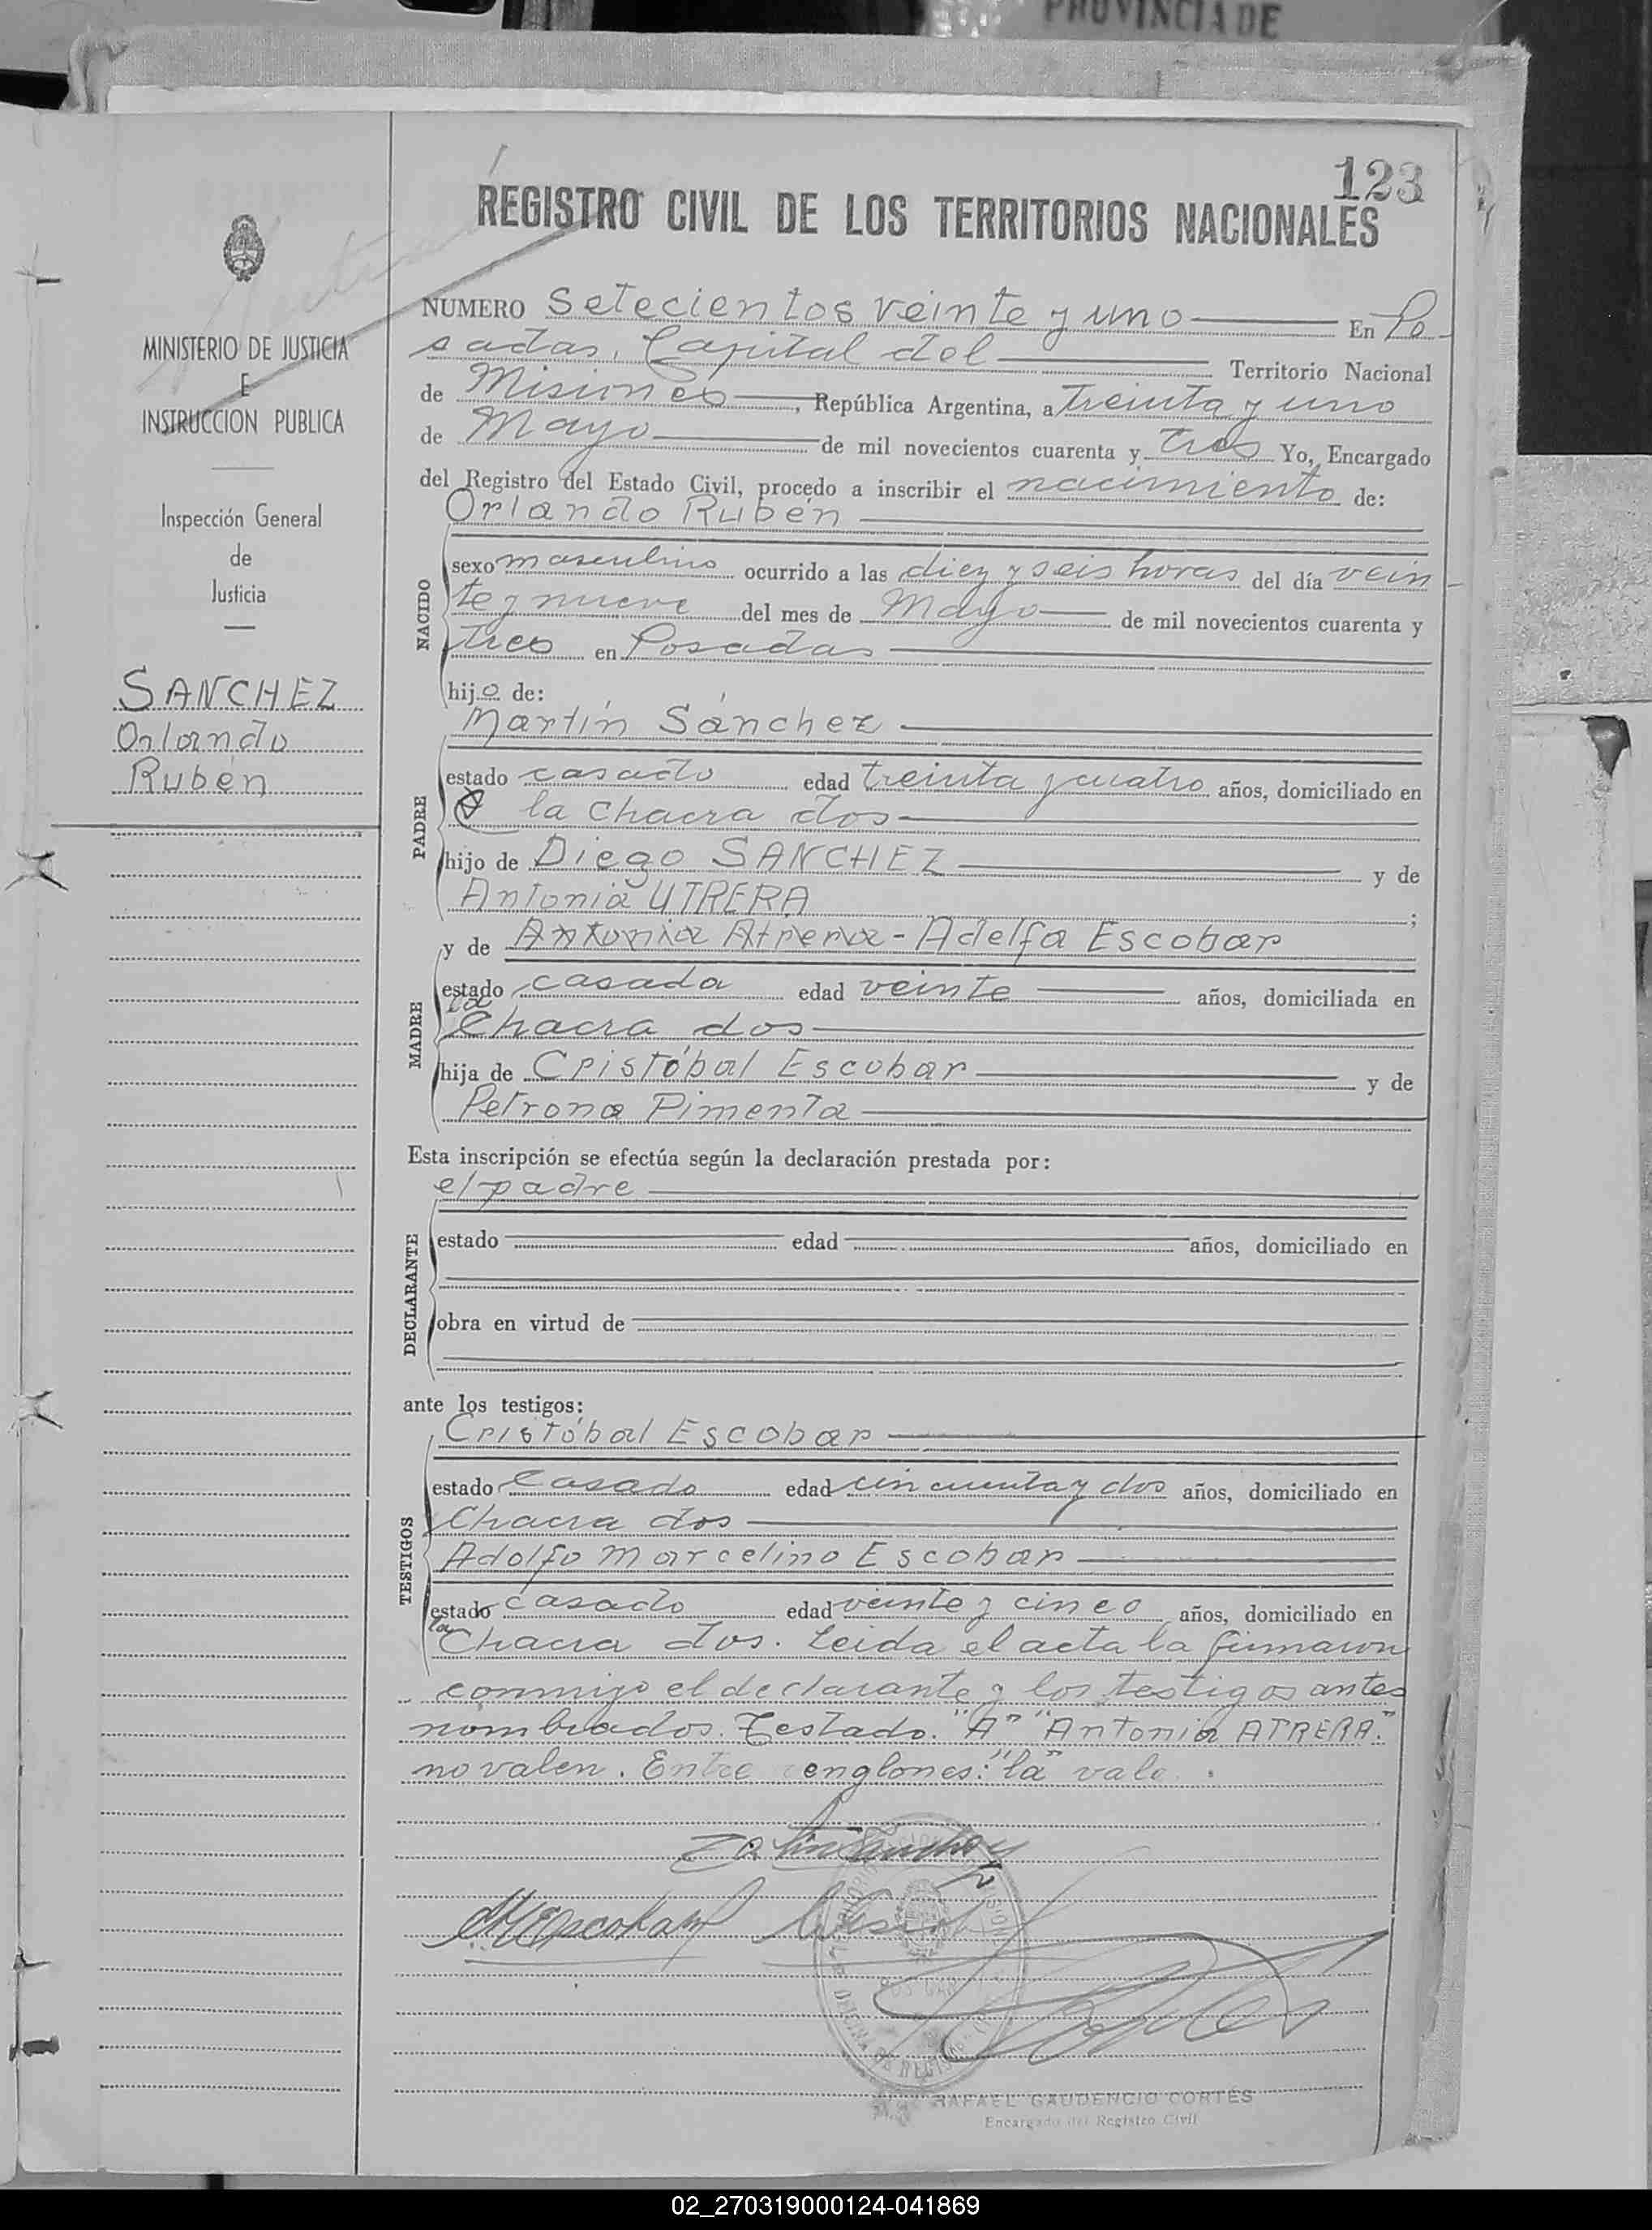 PROVINCIA DE
123
REGISTRO CIVIL DE LOS TERRITORIOS NACIONALES
MINISTERIO DE JUSTICIA
E
INSTRUCCION PUBLICA
Inspección General
de
Justicia
SANCHEZ
Orlando
Rubén
NUMERO Setecientos veinte y uno En Po-
sadas, Capital del Territorio Nacional
de Misiones, República Argentina, a treinta y uno
de Mayo de mil novecientos cuarenta y tres Yo, Encargado
del Registro del Estado Civil, procedo a inscribir el nacimiento de:
Orlando Rubén
NACIDO
sexo masculino ocurrido a las diez y seis horas del día vein-
te y nueve del mes de Mayo de mil novecientos cuarenta y
tres en Posadas
hijo de:
Martín Sánchez
PADRE
estado casado edad treinta y cuatro años, domiciliado en
A la Chacra dos
hijo de Diego SANCHEZ y de
Antonia UTRERA ;
MADRE
y de Antonia Atrera - Adelfa Escobar
estado casada edad veinte años, domiciliada en
la
Chacra dos
hija de Cristóbal Escobar y de
Petrona Pimenta
Esta inscripción se efectúa según la declaración prestada por:
el padre
DECLARANTE
estado edad años, domiciliado en
obra en virtud de
ante los testigos:
Cristóbal Escobar
TESTIGOS
estado Casado edad cincuenta y dos años, domiciliado en
Chacra dos
Adolfo Marcelino Escobar
estado casado edad veinte y cinco años, domiciliado en
la
Chacra dos. Leida el acta la firmaron
conmigo el declarante y los testigos antes
nombrados. Testado. "A" "Antonia ATRERA."
no valen. Entre renglones: "la" vale.
RAFAEL GAUDENCIO CORTÉS
Encargado del Registro Civil
02_270319000124-041869